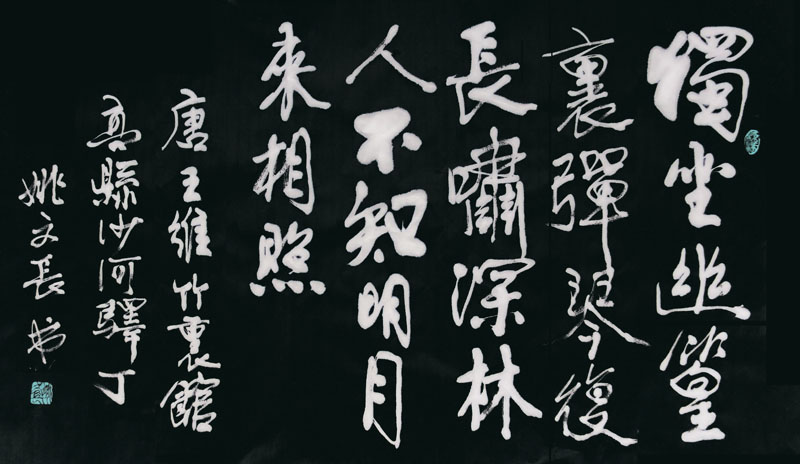 獨坐幽篁
裏彈琴復
長嘯深林
人不知明月
來相照
唐王維竹裏館
高縣沙河驛丁
姚文長书